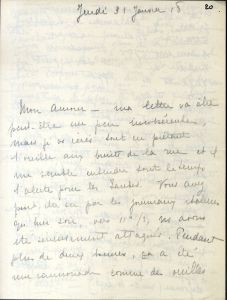 20
Jeudi 31 Janvier 18
Mon Amour — ma lettre va être
peut-être un peu incohérente,
mais je vs écris tout en prêtant
l'oreille aux bruits de la rue et il
me semble entendre tout le temps
d'alerte pour les Vous avez
peut-être su par les journaux
qu'hier soir, vers 11h ½, ns avons
été sérieusement attaqués. Pendant
plus de deux heures, ça a été
une canonnade comme de